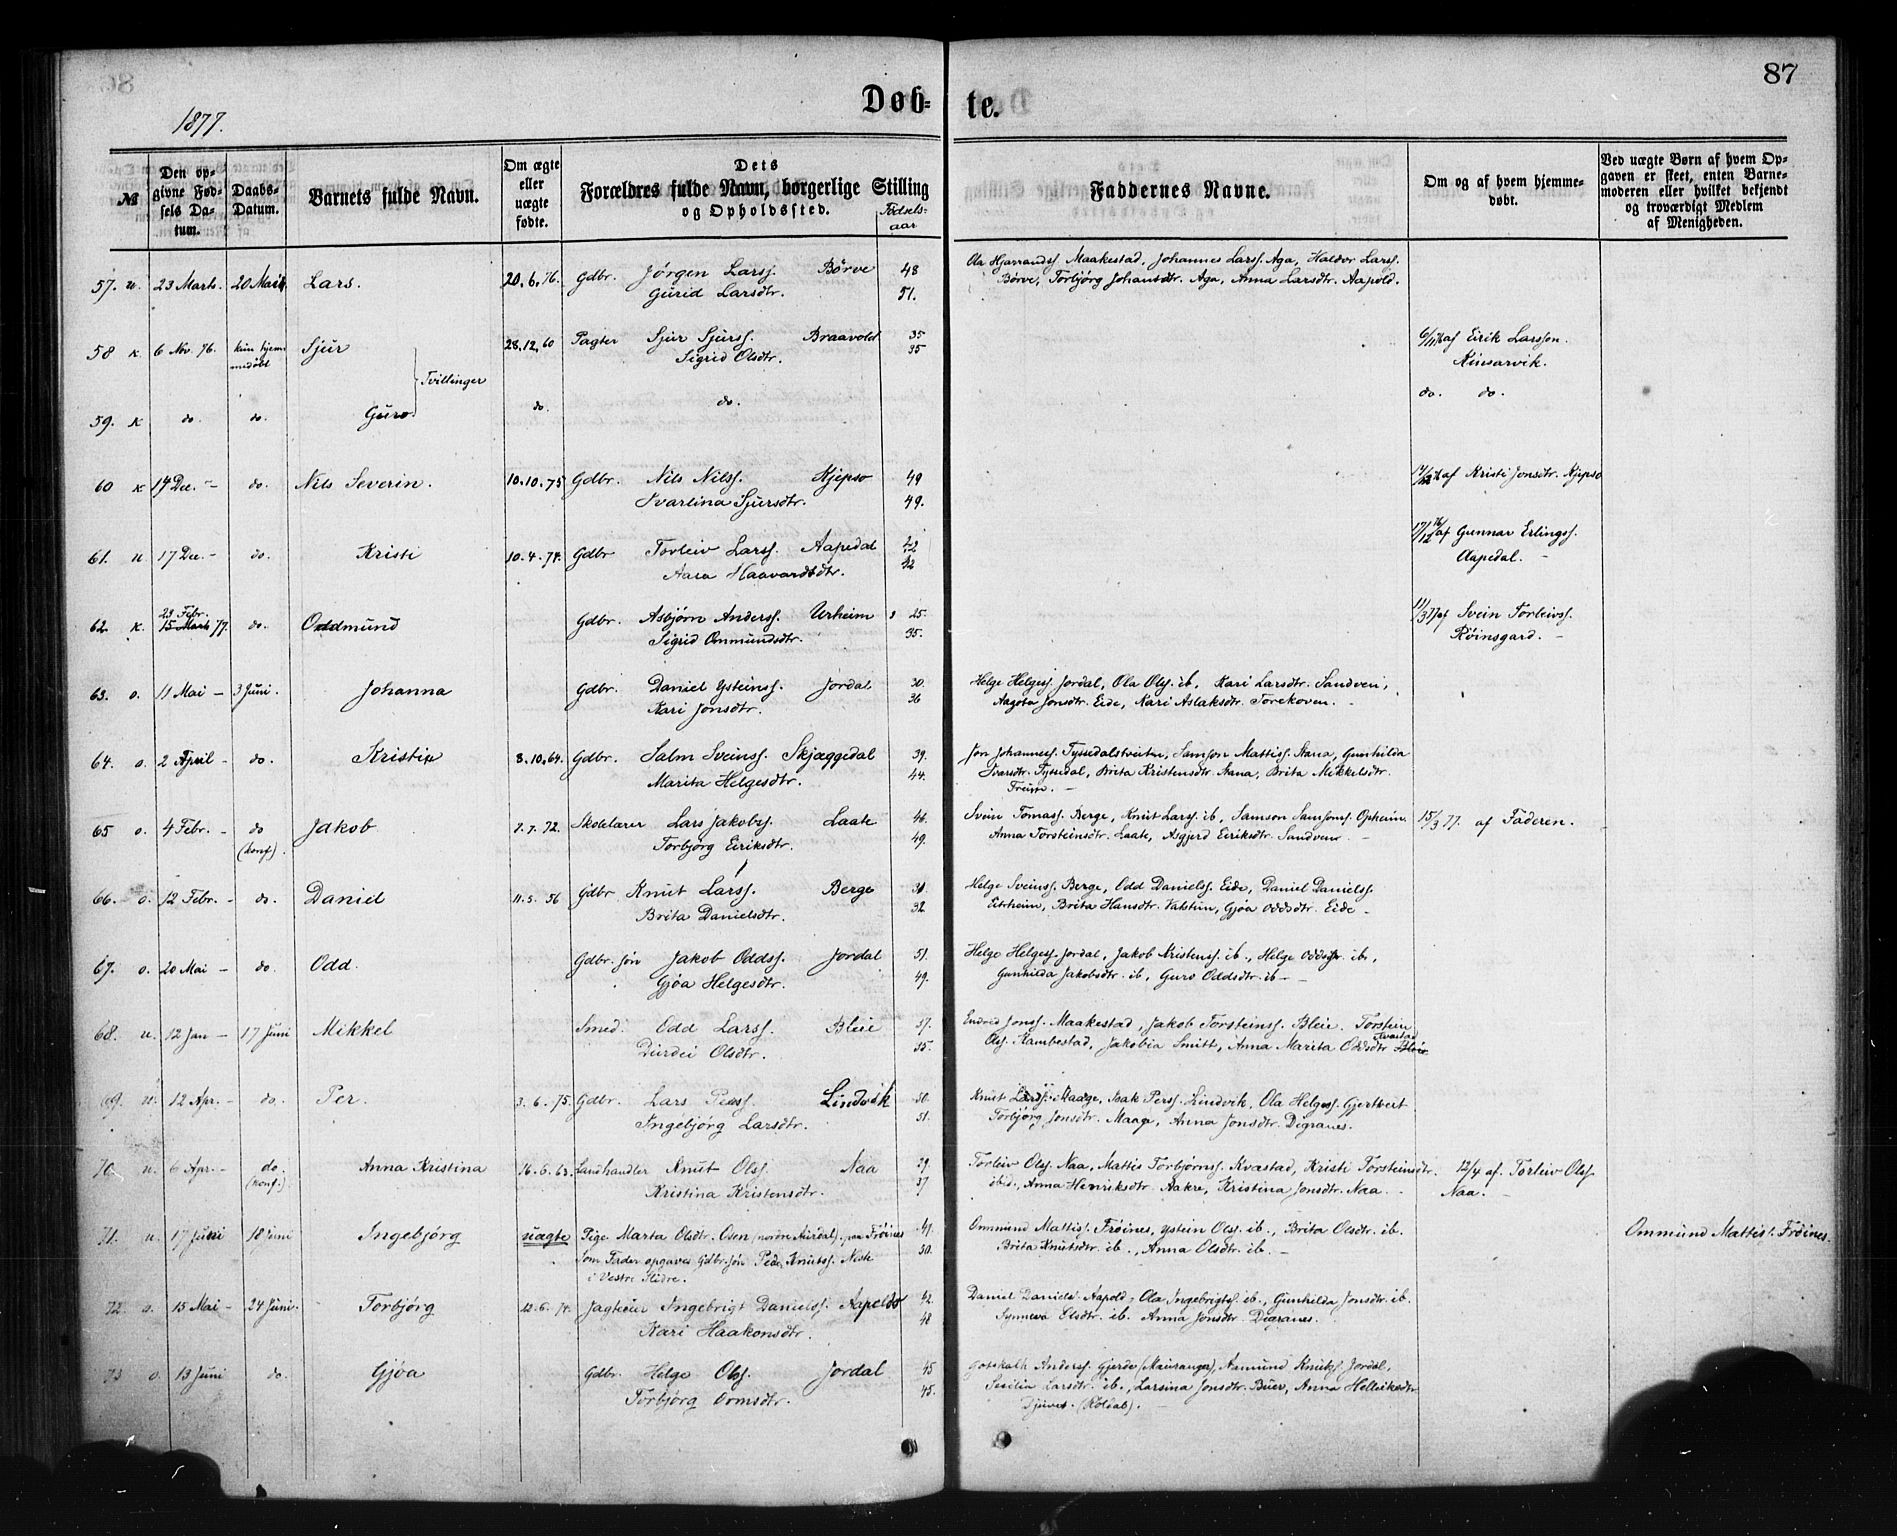 87
Døb-
te.
1877.
№
Den op-
givne Fød-
sels Da-
tum.
Daabs-
Datum.
Barnets fulde Navn.
Om ægte
eller
uægte
fødte.
Dets
Forældres fulde Navn, borgerlige Stilling
og Opholdssted.
Fødsels-
aar
Faddernes Navne.
Om og af hvem hjemme-
døbt.
Ved uægte Børn af hvem Op-
gaven er skeet, enten Barne-
moderen eller hvilket bekjendt
og troværdigt Medlem
af Menigheden.
57. u. 23 Marts. 20 Mai Lars. 20.6.76. Gdbr. Jørgen Larss. Børve 48
Gurid Larsdtr. 51.
Ola Hjarrandss. Maakestad, Johannes Larss. Aga, Haldor Larss.
Børve, Torbjørg Johansdtr. Aga, Anna Larsdtr. Aapold.
58 K 6 Nov. 76. kun hjem-
medøbt Sjur 28.12.60 Pagter Sjur Sjurss. Braavold 35
Sigrid Olsdtr. 35
Tvillinger
6/11 76 af Eirik Larsson.
Kinsarvik.
59. K do. do. Guro. do. do.
do. do.
60 K 14 Dec. - do. Nils Severin. 10.10.75 Gdbr. Nils Nilss. Kjepso 49
Ivarlina Sjursdtr. 49.
af Kristi Jonsdtr. Kjepso
61. u 17 Dec. - do. Kristi 10.4.74. Gdbr Torleiv Larss. Aapedal 42
Aasa Haavardsdtr. 42
17/12 76 af Gunnar Erlingss.
Aapedal. -
62. K. 23 Febr.
15 Marts 77. do. Oddmund Gdbr. Asbjørn Anderss. Urheim 25.
Sigrid Ommundsdtr. 35.
11/3 77 af Svein Torleivss.
Røinsgard. -
63. o. 11 Mai - 3 Juni. Johanna Gdbr. Daniel Ysteinss. Jordal 30.
Kari Jonsdtr. 36
Helge Helgess. Jordal, Ola Olss. ib, Kari Larsdtr. Sandven,
Aagota Jonsdtr. Eide, Kari Aslaksdtr. Torekoven. -
64. o. 2 April - do. Kristi 8.10.64. Gdbr. Salm Sveinss. Skjæggedal 39.
Marita Helgesdtr. 44.
Jon Johanness. Tyssedalstveiten, Samson Mattiss. Aana, Gunhilda
Ivarsdtr. Tyssedal, Brita Kristensdtr. Aana, Brita Mikkelsdtr.
Freim. -
65 o. 4 Febr. - do
(konf.). Jakob 7.7.72. Skolelærer Lars Jakobss. Laate 46.
Torbjørg Eiriksdtr. 49.
Svein Tomass. Berge, Knut Larss. ib, Samson Samsons. Opheim.
Anna Torsteinsdtr. Laate, Asgjerd Eiriksdtr. Sandven -
15/3 77. af Faderen.
66. o. 12 Febr. - do. Daniel 11.5.56 Gdbr Knut Larss. Berge 30.
Brita Danielsdtr. 32.
Helge Sveinss. Berge, Odd Danielss. Eide, Daniel Danielss.
Eitrheim, Brita Hansdtr. Valstun, Gjøa Oddsdtr. Eide -
67. o. 20 Mai - do. Odd. Gdbr. Søn Jakob Oddss. Jordal 51.
Gjøa Helgesdtr. 49.
Helge Helgess. Jordal, Jakob Kristenss. ib., Helge Oddss. ib.,
Gunhilda Jakobsdtr. ib, Guro Oddsdtr. ib - -
68. u. 12 Jan - 17 Juni Mikkel Smed. Odd Larss. Bleie 37.
Durdei Olsdtr. 35.
Endred Jonss. Maakestad, Jakob Torsteinss. Bleie. Torstein
Olss. Kambestad, Jakobia Smitt, Anna Marita Oddsdtr Bleie
Kvastad
69. u. 12 Apr. - do. Per. 3.6.75. Gdbr. Lars Perss. Lindvik 50.
Ingebjørg Larsdtr. 51.
Knut Larss. Maage, Isak Perss. Lindvik, Ola Helgess. Gjertveit
Torbjørg Jonsdtr. Maage, Anna Jonsdtr. Digranes.
70. u. 6 Apr. - do.
(konf.). Anna Kristina 16.6.63. Landhandler Knut Olss. Naa 29.
Kristina Kristensdtr. 37
Torleiv Olss. Naa, Mattis Torbjørnss. Kvastad, Kristi Torsteinsdtr.
ibid., Anna Henriksdtr. Aakre, Kristina Jonsdtr. Naa. -
12/4 af. Torleiv Olss.
Naa. -
71. u. 17 Juni 18 Juni Ingebjørg uægte Pige Marta Olsdtr. Osen (nordre Aurdal). paa Frøines 41.
Som Fader opgaves Gdbr. Søn Peder Knutss. Neste 50.
i Vestre Slidre.
Ommund Mattiss. Frøines, Ystein Olss. ib., Brita Olsdtr. ib.
Brita Knutsdtr. ib., Anna Olsdtr. ib. -
Ommund Mattiss. Frøines.
72. o. 15 Mai - 24 Juni. Torbjørg 6.74. Jagteier Ingebrigt Danielss. Aapeldo 42.
Kari Haakonsdtr. 48
Daniel Daniels. Aapold, Ola Ingebrigtss. ib., Gunhilda Jonsdtr. ib.
Synneva Olsdtr. ib. Anna Jonsdtr. Digranes.
73 o. 13 Juni do. Gjøa Gdbr. Helge Olss. Jordal 45
Torbjørg Ormsdtr. 45.
Gotskalk Anderss. Gjerde (Mauranger), Aamund Knutss. Jordal,
Sesilia Larsdtr. ib., Larsina Jonsdtr. Buer, Anna Helleiksdtr
Djuves. (Røldal). -